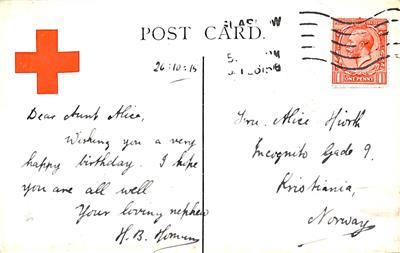 POST CARD.
GLASGOW
ONE PENNY
26:10:15
Dear Aunt Alice,
Wishing you a very
happy birthday. I hope
you are all well
Your loving nephew
H. B.
Fru. Alice Hiorth
Incognito Gade 9.
Kristiania,
Norway